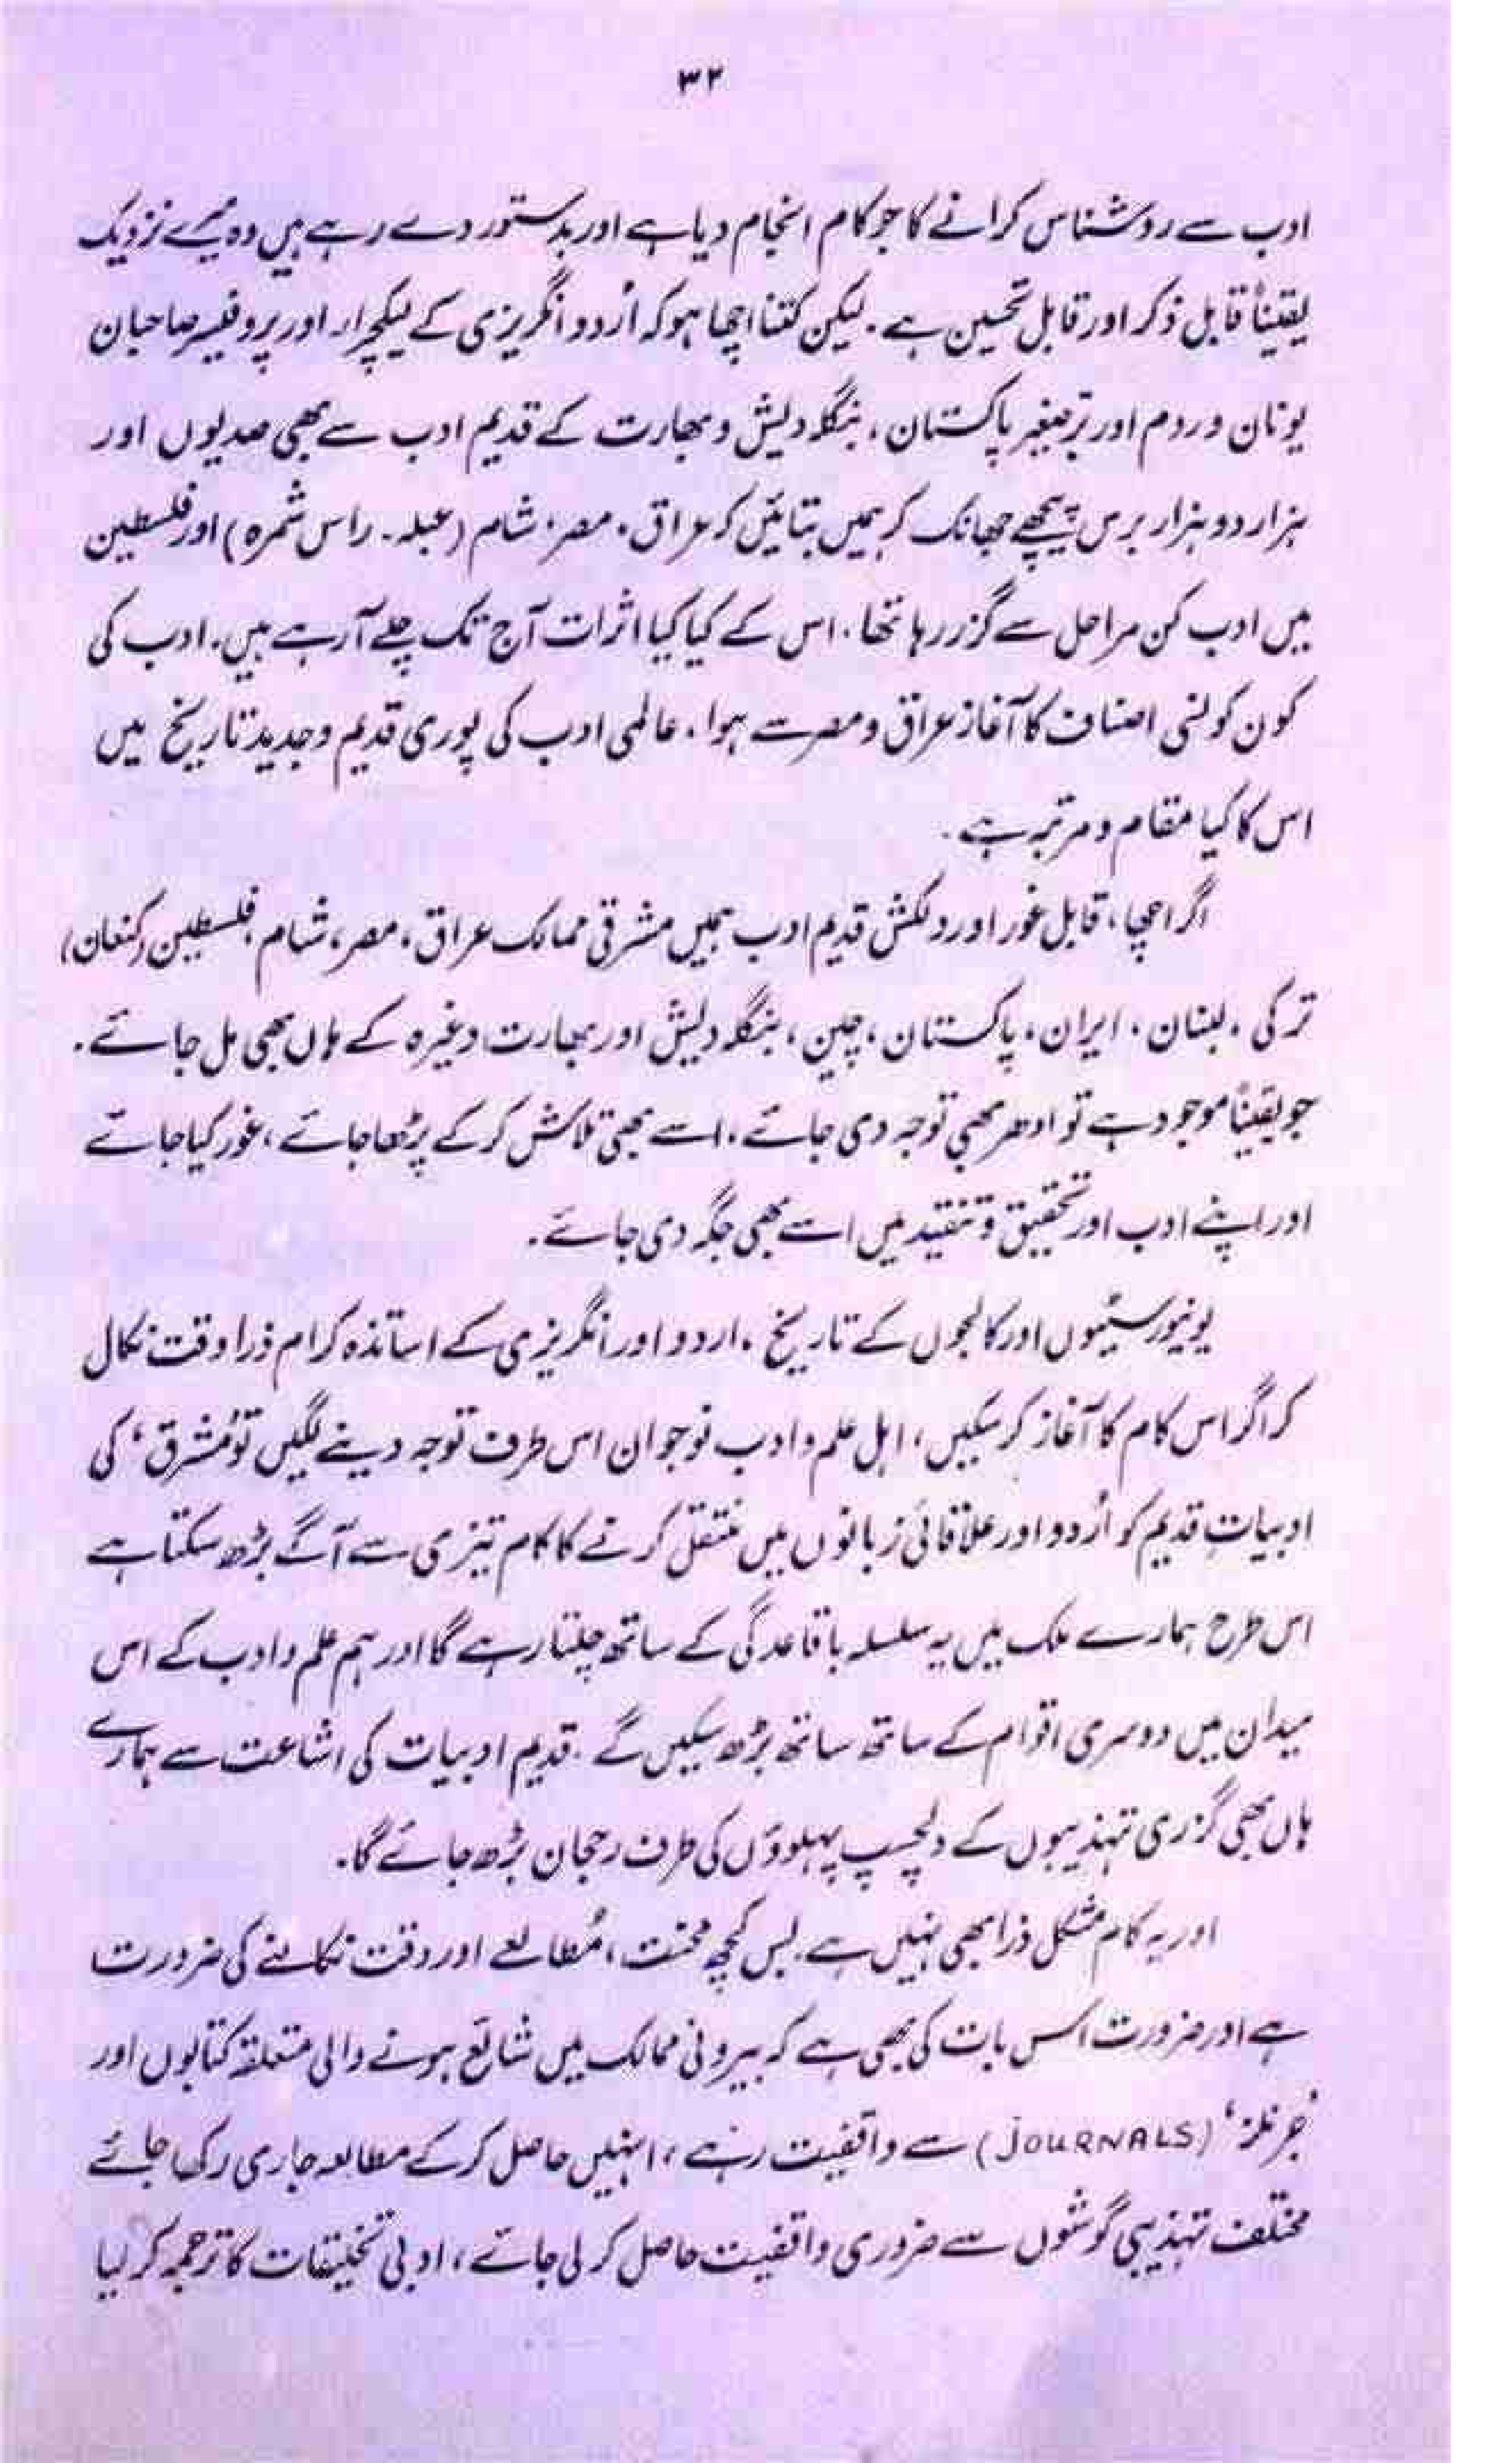 ۳۲
ادب سے روشناس کرانے کا جو کام انجام دیا ہے اور بدستور دے رہے ہیں وہ میرے نزدیک
یقیناً قابل ذکر اور قابل تحسین ہے۔ لیکن کتنا اچھا ہو کہ اُردو انگریزی کے لیکچرار اور پروفیسر صاحبان
یونان و روم اور برّصغیر پاکستان، بنگلہ دیش و بھارت کے قدیم ادب سے بھی صدیوں اور
ہزار دو ہزار برس پیچھے جھانک کر ہمیں بتائیں کہ عراق، مصر، شام (عبلہ۔ راس شمرہ) اور فلسطین
میں ادب کن مراحل سے گزر رہا تھا۔ اس کے کیا کیا اثرات آج تک چلے آ رہے ہیں۔ ادب کی
کون کونسی اصناف کا آغاز عراق و مصر سے ہوا، عالمی ادب کی پوری قدیم و جدید تاریخ میں
اس کا کیا مقام و مرتبہ ہے۔
اگر اچھا، قابل غور اور دلکش قدیم ادب ہمیں مشرقی ممالک عراق، مصر، شام، فلسطین (کنعان)
ترکی، لبنان، ایران، پاکستان، چین، بنگلہ دیش اور بھارت وغیرہ کے ہاں بھی مل جائے۔
جو یقیناً موجود ہے تو ادھر بھی توجہ دی جائے، اسے بھی تلاش کر کے پڑھا جائے، غور کیا جائے
اور اپنے ادب اور تحقیق و تنقید میں اسے بھی جگہ دی جائے۔
یونیورسٹیوں اور کالجوں کے تاریخ، اردو اور انگریزی کے اساتذہ کرام ذرا وقت نکال
کر اگر اس کام کا آغاز کر سکیں، اہل علم و ادب نوجوان اس طرف توجہ دینے لگیں تو 'مشرق' کی
ادبیاتِ قدیم کو اُردو اور علاقائی زبانوں میں منتقل کرنے کا کام تیزی سے آگے بڑھ سکتا ہے
اس طرح ہمارے ملک میں یہ سلسلہ باقاعدگی کے ساتھ چلتا رہے گا اور ہم علم و ادب کے اس
میدان میں دوسری اقوام کے ساتھ ساتھ بڑھ سکیں گے۔ قدیم ادبیات کی اشاعت سے ہمارے
ہاں بھی گزری تہذیبوں کے دلچسپ پہلوؤں کی طرف رجحان بڑھ جائے گا۔
اور یہ کام مشکل ذرا بھی نہیں ہے۔ بس کچھ محنت، مُطالعے اور وقت نکالنے کی ضرورت
ہے اور ضرورت اس بات کی بھی ہے کہ بیرونی ممالک میں شائع ہونے والی متعلقہ کتابوں اور
'جرنلز' (JOURNALS) سے واقفیت رہے، انہیں حاصل کر کے مطالعہ جاری رکھا جائے
مختلف تہذیبی گوشوں سے ضروری واقفیت حاصل کر لی جائے، ادبی تخلیقات کا ترجمہ کر لیا